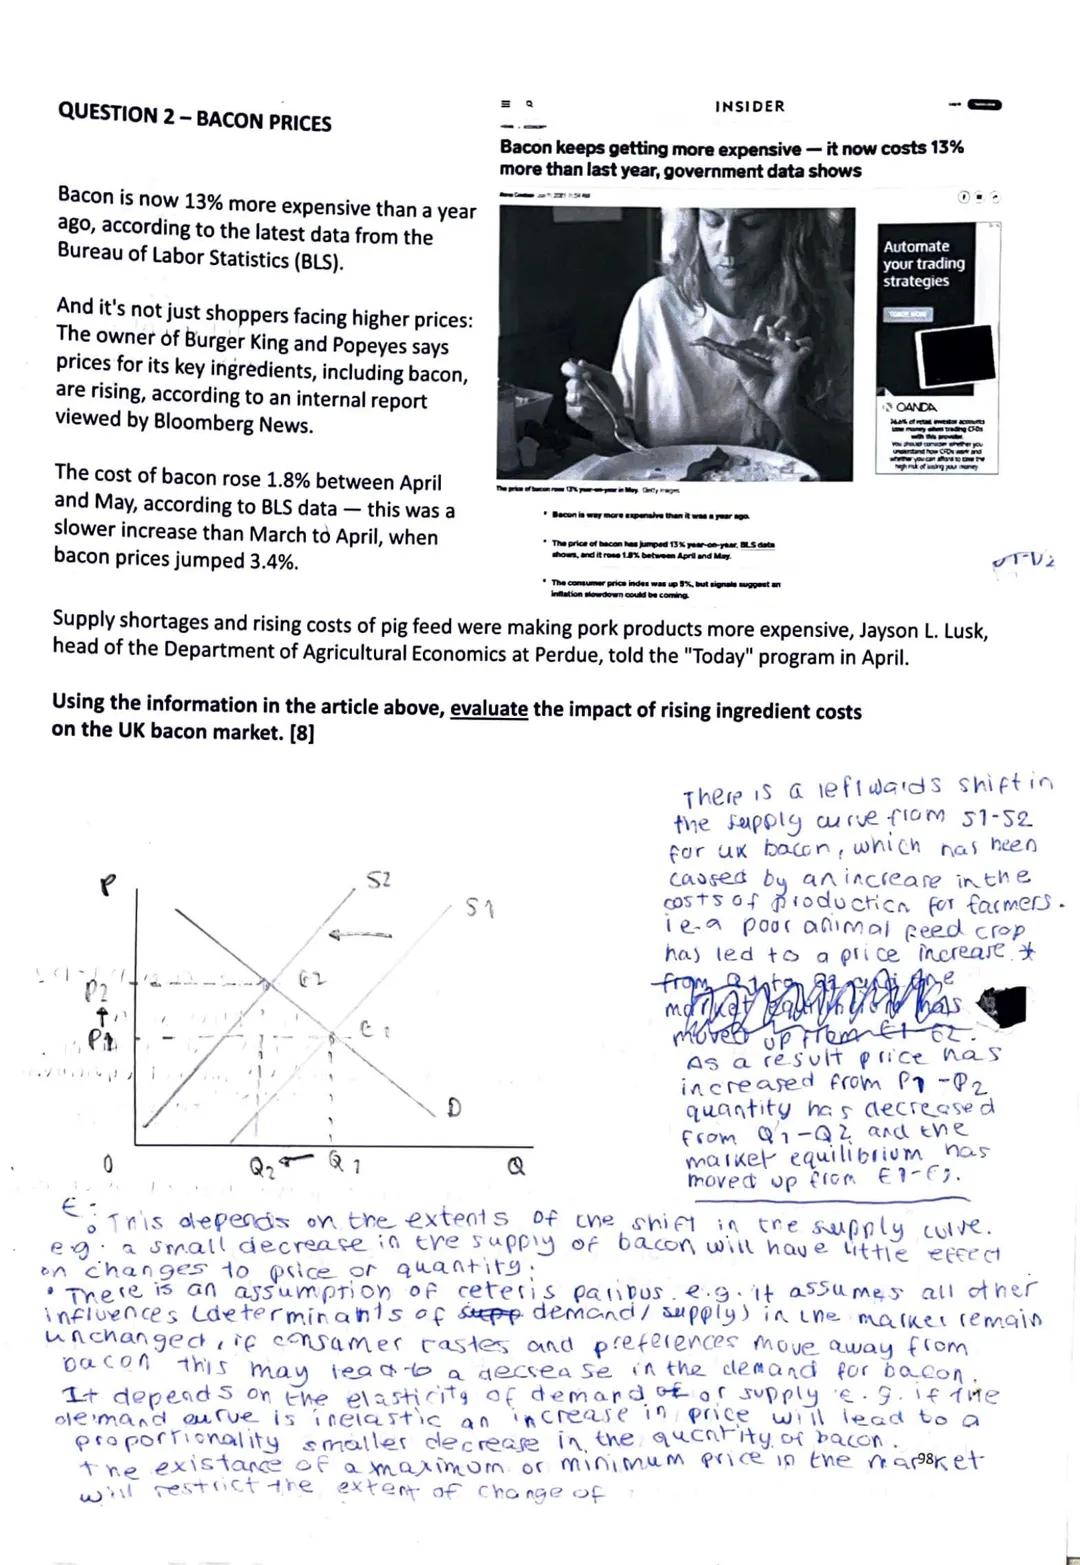 QUESTION 2 – BACON PRICES
INSIDER
Bacon keeps getting more expensive — it now costs 13%
more than last year, government data shows
Bacon is now 13% more expensive than a year
ago, according to the latest data from the
Bureau of Labor Statistics (BLS).
And it's not just shoppers facing higher prices:
The owner of Burger King and Popeyes says
prices for its key ingredients, including bacon,
are rising, according to an internal report
viewed by Bloomberg News.
The cost of bacon rose 1.8% between April
and May, according to BLS data — this was a
slower increase than March to April, when
bacon prices jumped 3.4%.
Automate
your trading
strategies
OANDA
74.8% of retail investor accounts
lose money when trading CFDs
with this provider.
You should consider whether you
understand how CFDs work and
whether you can afford to take the
high risk of losing your money
The price of bacon rose 13% year-on-year in May. Getty Images
• Bacon is way more expensive than it was a year ago.
• The price of bacon has jumped 13% year-on-year, BLS data
shows, and it rose 1.8% between April and May.
• The consumer price index was up 5%, but signals suggest an
inflation slowdown could be coming.
Supply shortages and rising costs of pig feed were making pork products more expensive, Jayson L. Lusk,
head of the Department of Agricultural Economics at Perdue, told the "Today" program in April.
Using the information in the article above, evaluate the impact of rising ingredient costs
on the UK bacon market. [8]
There is a leftwards shift in
the supply curve from S1-S2
for UK bacon, which has been
caused by an increase in the
costs of production for farmers.
i.e. a poor animal feed crop
has led to a price increase *
from Q1 to
market equilibrium has
moved up from E1-E2.
As a result price has
increased from P1-P2
quantity has decreased
from Q1-Q2 and the
market equilibrium has
moved up from E1-E2.
P
S2
S1
P2
E2
P1
E1
D
0
Q2
Q1
Q
E:
• This depends on the extents of the shift in the supply curve.
e.g. a small decrease in the supply of bacon will have little effect
on changes to price or quantity.
• There is an assumption of ceteris paribus. e.g. it assumes all other
influences (determinants of supp demand/supply) in the market remain
unchanged, if consumer tastes and preferences move away from
bacon this may lead to a decrease in the demand for bacon.
It depends on the elasticity of demand of or supply e.g. if the
demand curve is inelastic an increase in price will lead to a
proportionality smaller decrease in the quantity of bacon.
the existance of a maximum or minimum price in the market
98
will restrict the extent of change of